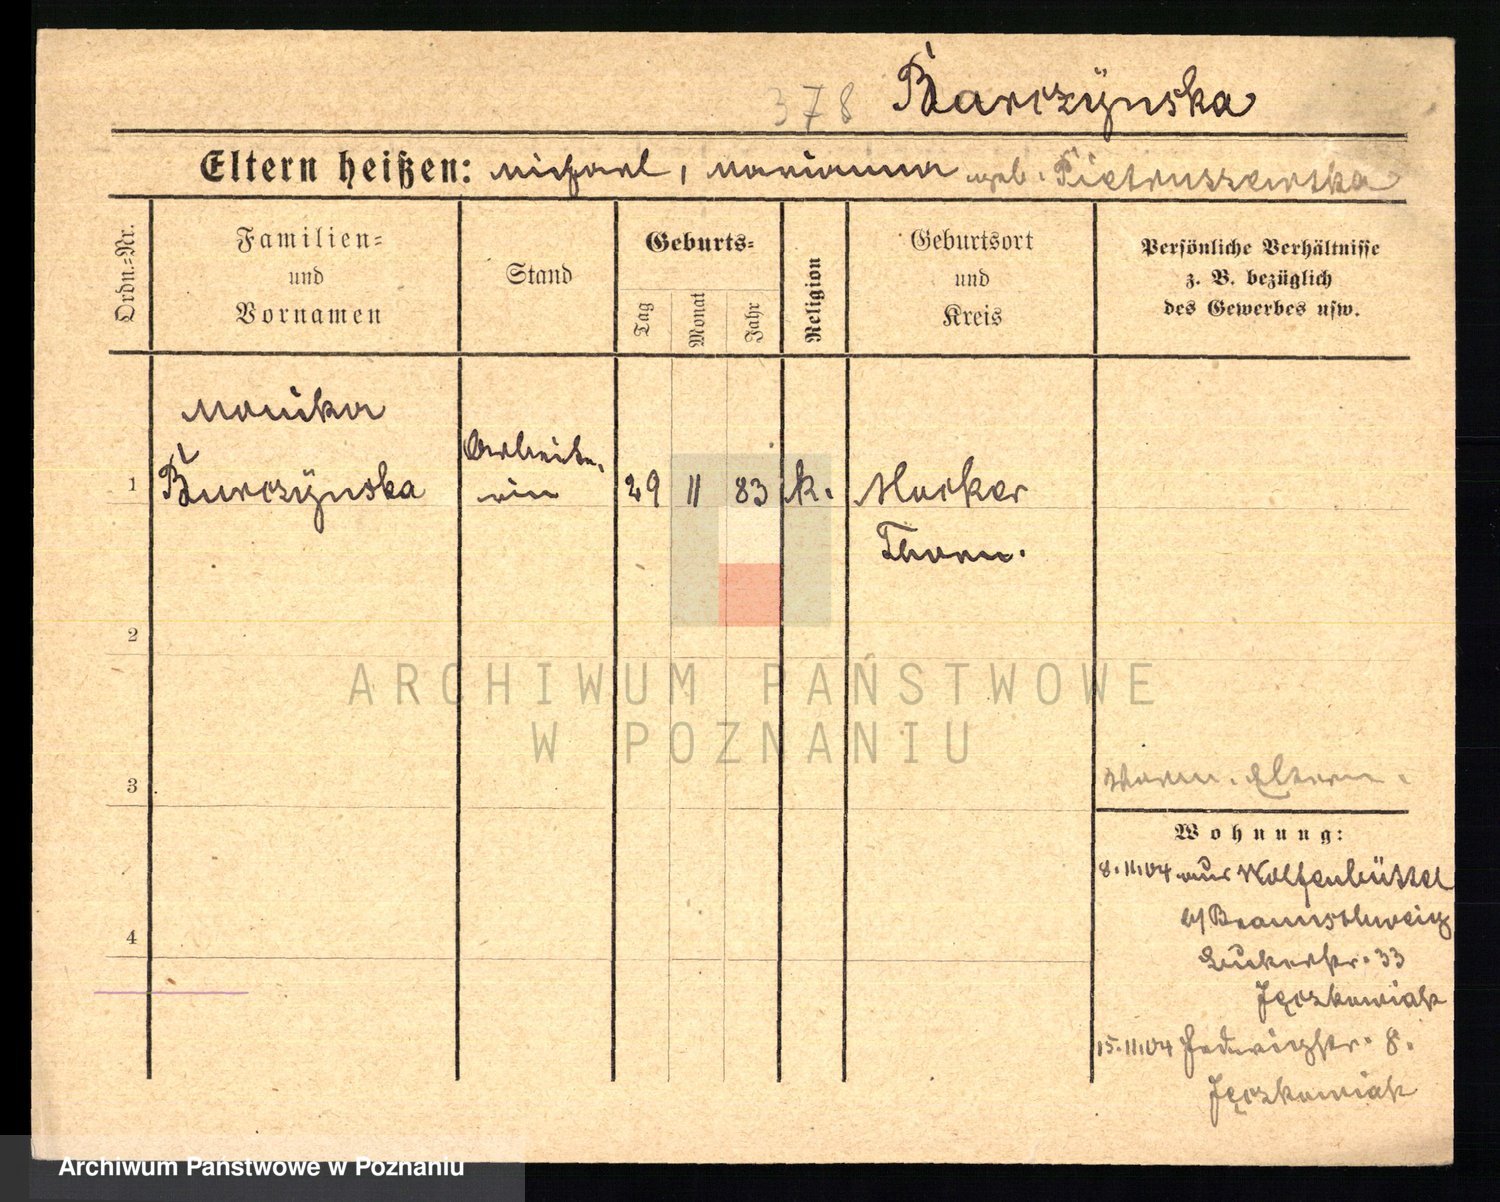 378 Barczÿnska
Eltern heißen: Michael, Marianna geb. Pietruszewska
Ordn.-Nr.
Familien-
und
Vornamen
Stand
Geburts-
Tag
Monat
Jahr
Religion
Geburtsort
und
Kreis
Persönliche Verhältnisse
z. B. bezüglich
des Gewerbes usw.
Monika
1 Burczÿnska
Arbeite-
rin
29 11 83 k.
Mocker
Thorn.
2
3
4
ARCHIWUM PAŃSTWOWE
W POZNANIU
Eltern.
Wohnung:
8.11.04 aus Wolfenbüttel
b/ Braunschweig
33
Jęczkowiak
15.11.04 Hedwigstr. 8.
Jęczkowiak
Archiwum Państwowe w Poznaniu